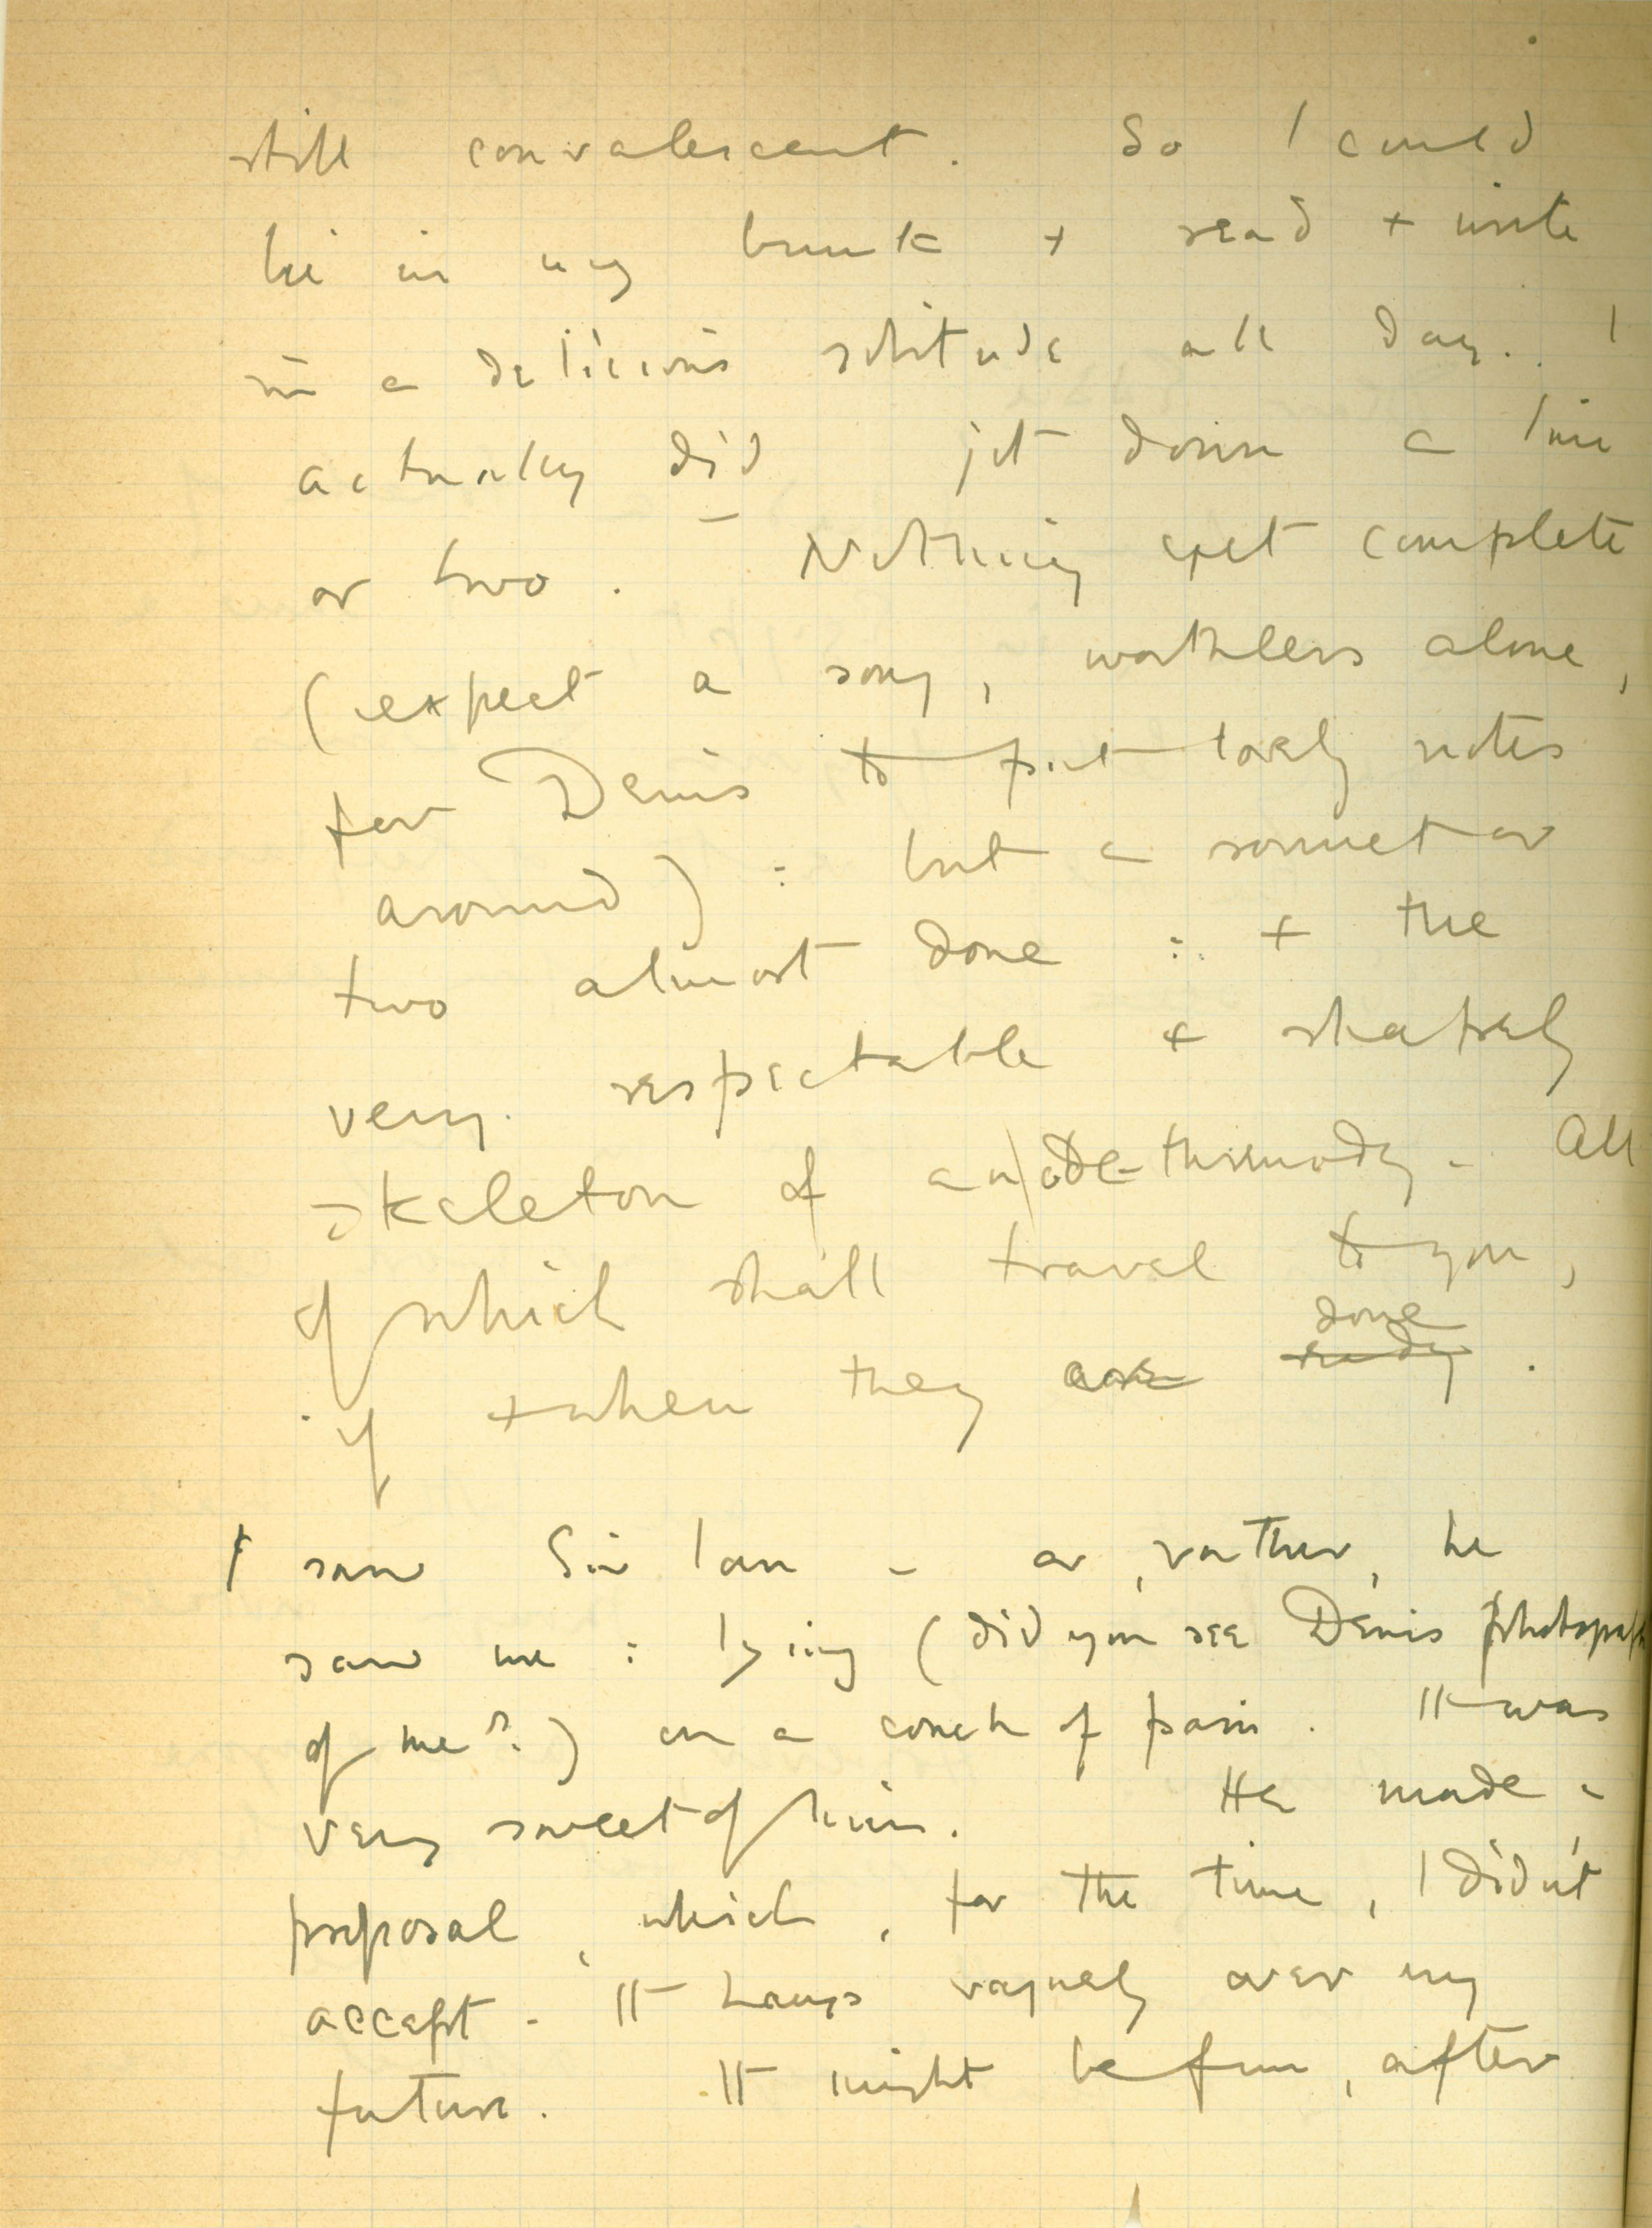 still convalescent. So I could
lie in my bunk + read + write
in a delicious solitude all day. I
actually did jot down a line
or two. — Nothing yet complete
(expect a song, worthless alone,
for Denis to put lovely notes
around) : but a sonnet or
two almost done : + the
very respectable + shapely
skeleton of an ode-threnody. All
of which shall travel to you,
if + when they are ready done.
I saw Sir Ian – or, rather, he
saw me : lying (did you see Denis photograph
of me?) on a couch of pain. It was
very sweet of him. He made a
proposal, which, for the time, I didn't
accept. It hangs vaguely over my
future. It might be fun, after